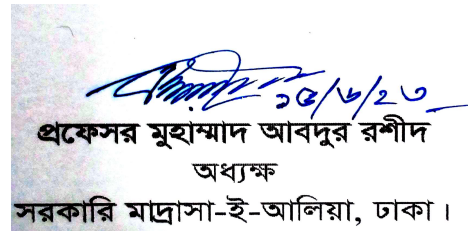 ১৫/৬/২৩
প্রফেসর মুহাম্মাদ আবদুর রশীদ
অধ্যক্ষ
সরকারি মাদ্রাসা-ই-আলিয়া, ঢাকা।